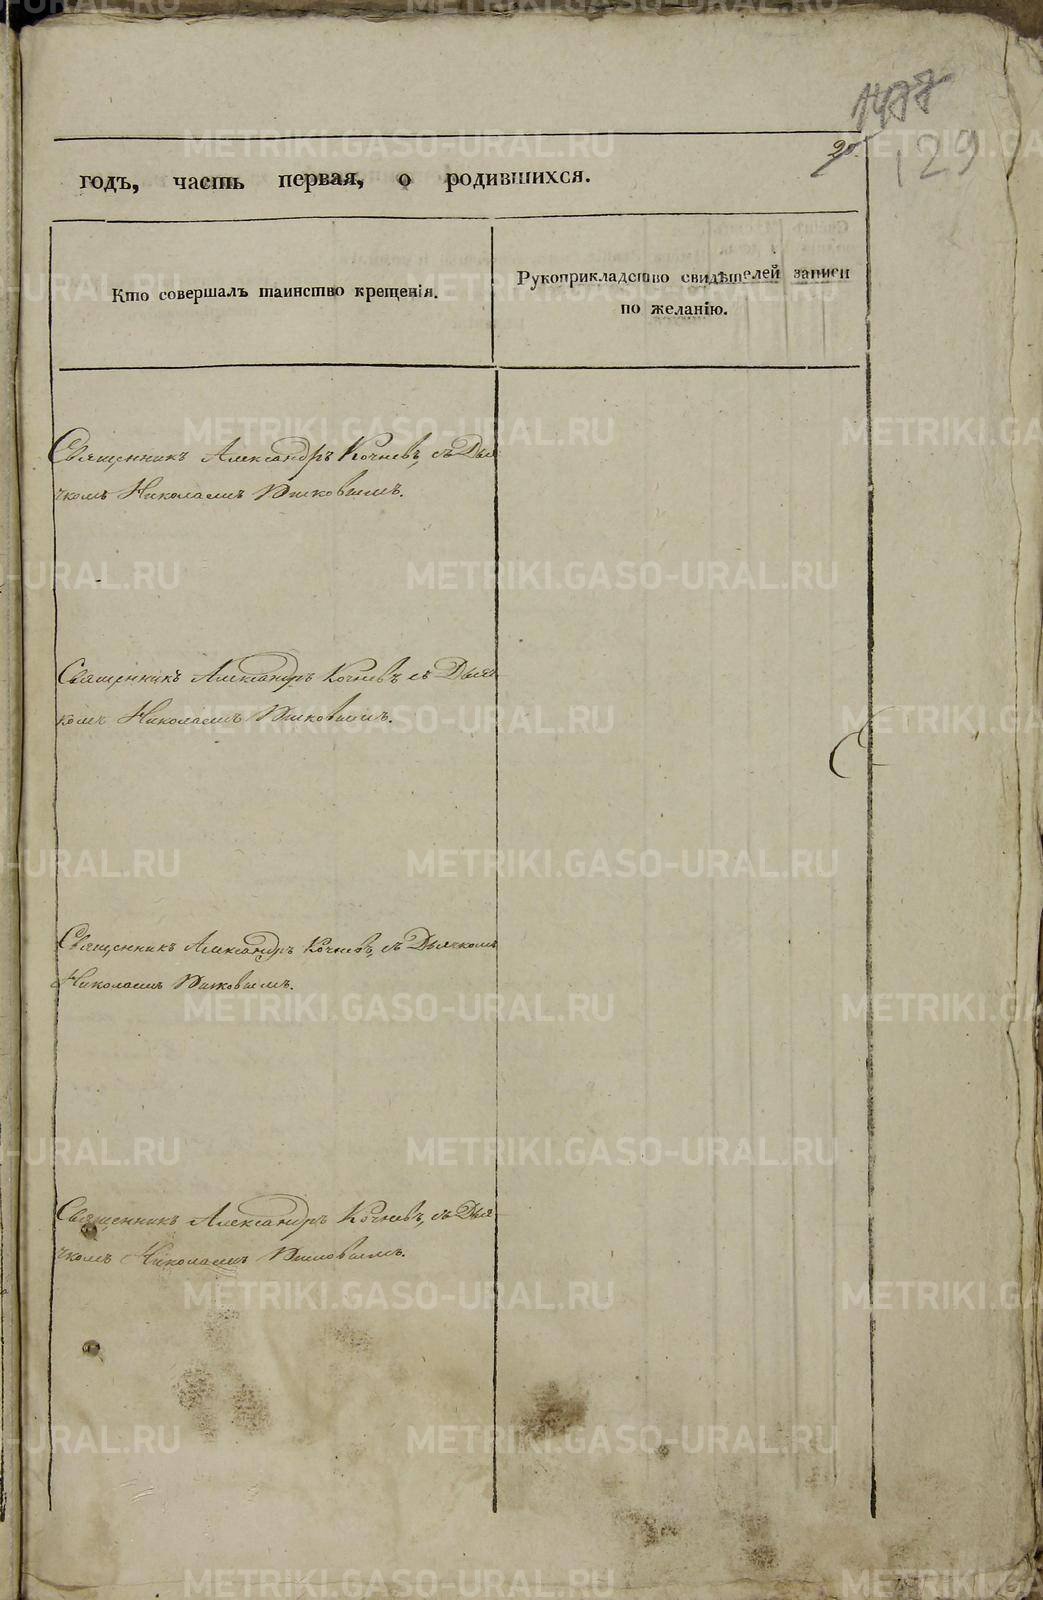 129
годъ, часть первая, о родившихся.
Кто совершалъ таинство крещенія.
Рукоприкладство свидѣтелей записи
по желанію.
Священникъ Александръ Кочневъ, съ Дья
чкомъ Николаемъ
Священникъ Александръ Кочневъ съ Дьяч
комъ Николаемъ
Священникъ Александръ Кочневъ, съ Дьячкомъ
Николаемъ
Священникъ Александръ Кочневъ, съ Дья
чкомъ Николаемъ
METRIKI.GASO-URAL.RU